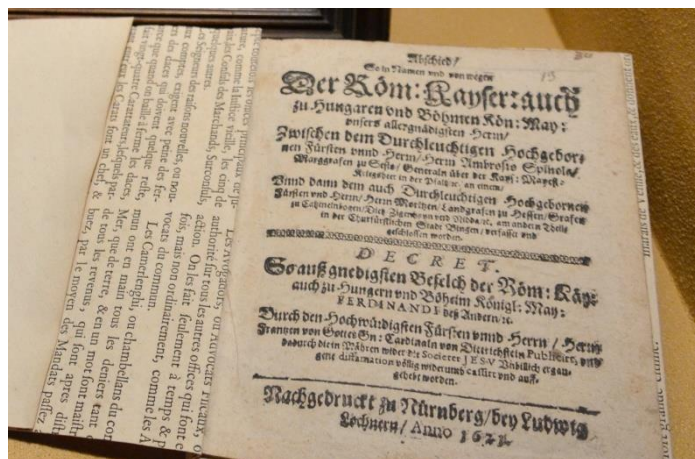 Abschied/
So in Namen vnd von wegen
Der Röm: Kayser: auch
zu Hungaren vnd Böhmen Kön: May:
vnsers allergnädigsten Herrn/
Zwischen dem Durchleuchtigen Hochgebor-
nen Fürsten vnnd Herrn/ Herrn Ambrosio Spinola/
Marggrafen zu Sesto/ Generaln über der Kays: Mayest:
Kriegsheer in der Pfaltz/ꝛc. an einem/
Vnnd dann dem auch Durchleuchtigen Hochgebornen
Fürsten vnd Herrn/ Herrn Moritzen/ Landgrafen zu Hessen/ Grafen
zu Catzenelnbogen/ Dietz/ Ziegenhayn vnd Nidda/ꝛc. am andern Theils
in der Churfürstlichen Stadt Bingen/ verfasset vnd
geschlossen worden.
DECRET.
So auß gnedigsten Befelch der Röm: Käy:
auch zu Hungern vnd Böheim Königl: May:
FERDINANDI deß Andern/ꝛc.
Durch den Hochwürdigsten Fürsten vnnd Herrn/ Herrn
Frantzen von Gottes Gn: Cardinaln von Dietrichstein Publicirt, vnd
dardurch die in Mähren wider die Societet JESV Vnbillich ergan-
gene diffamation völlig widerumb cassirt vnd auff-
gehebt worden.
Nachgedruckt zu Nürnberg/ bey Ludwig
Lochnern/ Anno 1621.
19
ture, comme la Iustice vieille, les cinq de
aux les Consuls des Marchands, Surconsuls,
quelques autres.
Les Seigneurs des raisons nouvelles, ou nou-
ux comptes, exigent avec peine des fer-
rs des daces qui doivent quelque reste,
rce que quand on baille à ferme les daces,
Les Avogadors, ou Advocats Fiscaux,
authorité sur tous les autres offices qui font
action. On les fait seulement à temps &
fois, mais non ordinairement, comme les A
vocats du commun.
Les Camerlenghi, ou chambellans du com
mun ont en main tous les deniers tant
Mer, que de terre, & en un mot sont maistr
de tous les revenus, qui sont apres distr
buez, par le moyen des Mandats passez